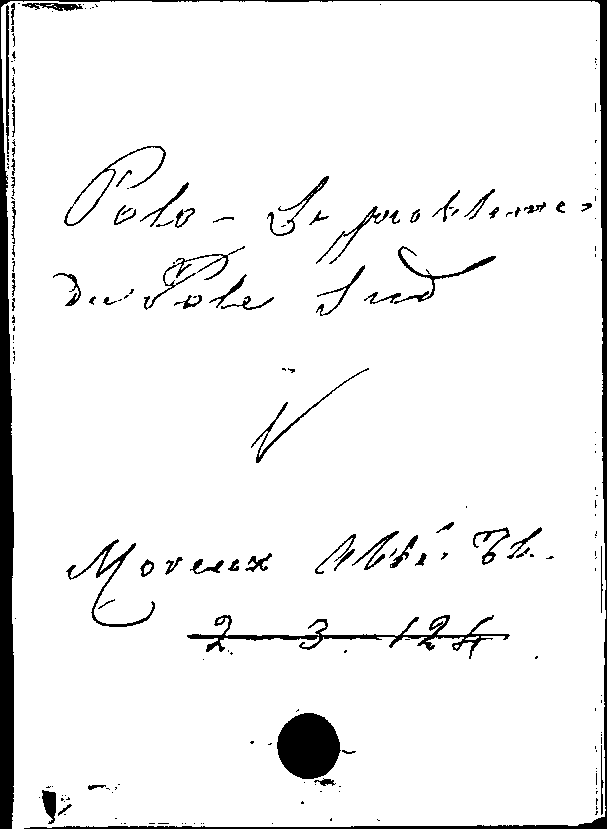 Polo - Le problème
du Pole Sud
V
Moreux Abbé. Th.
2 3 124